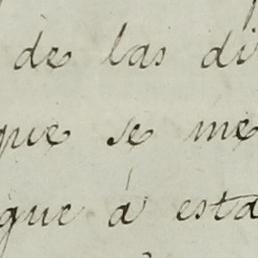 de las di
que se me
gue á esta